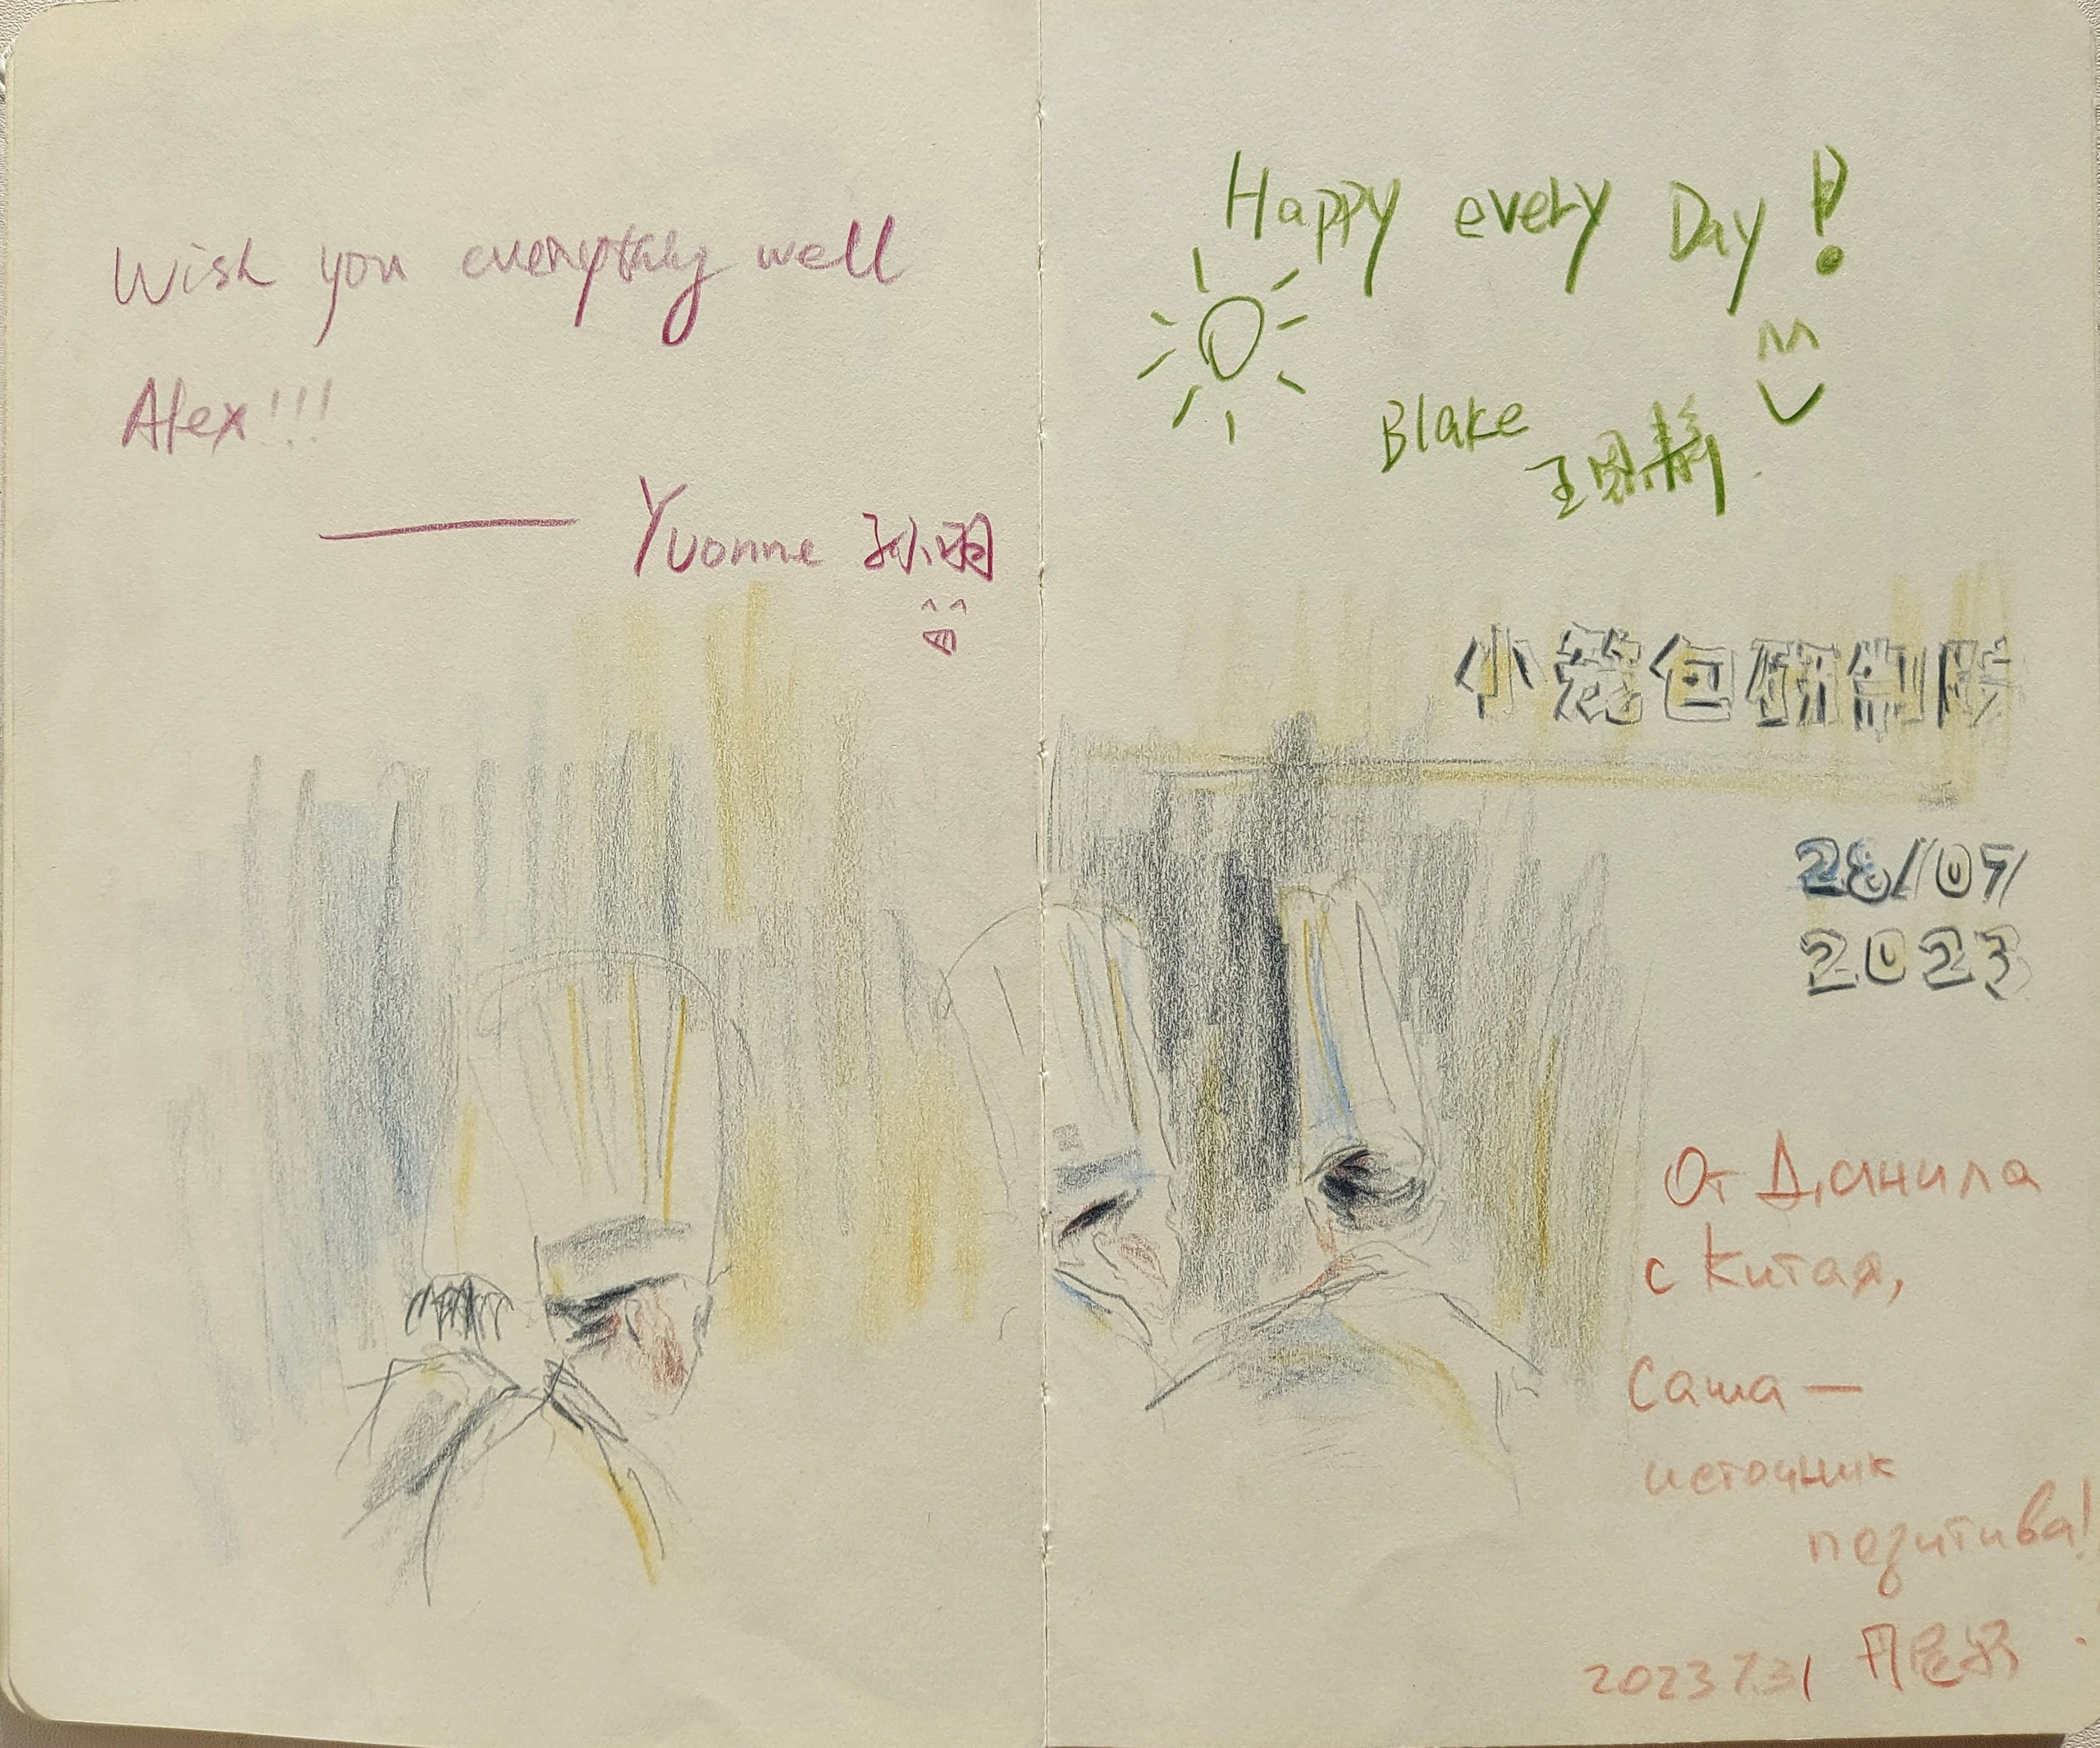 Wish you everything well
Alex!!!
Yvonne 孙羽
Happy every Day!
Blake
王思静
小笼包研制所
28/07
2023
От Данила
с Китая,
Саша —
источник
позитива!
2023 7.31 丹尼尔